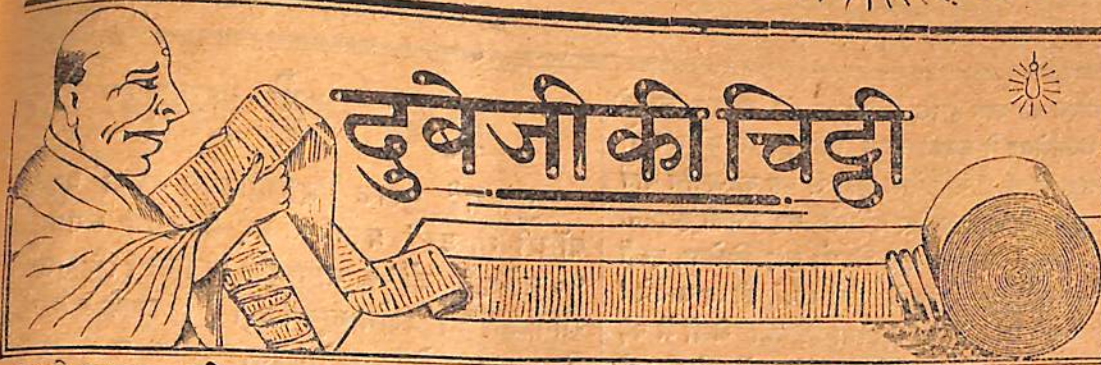 दुबेजी की चिट्ठी